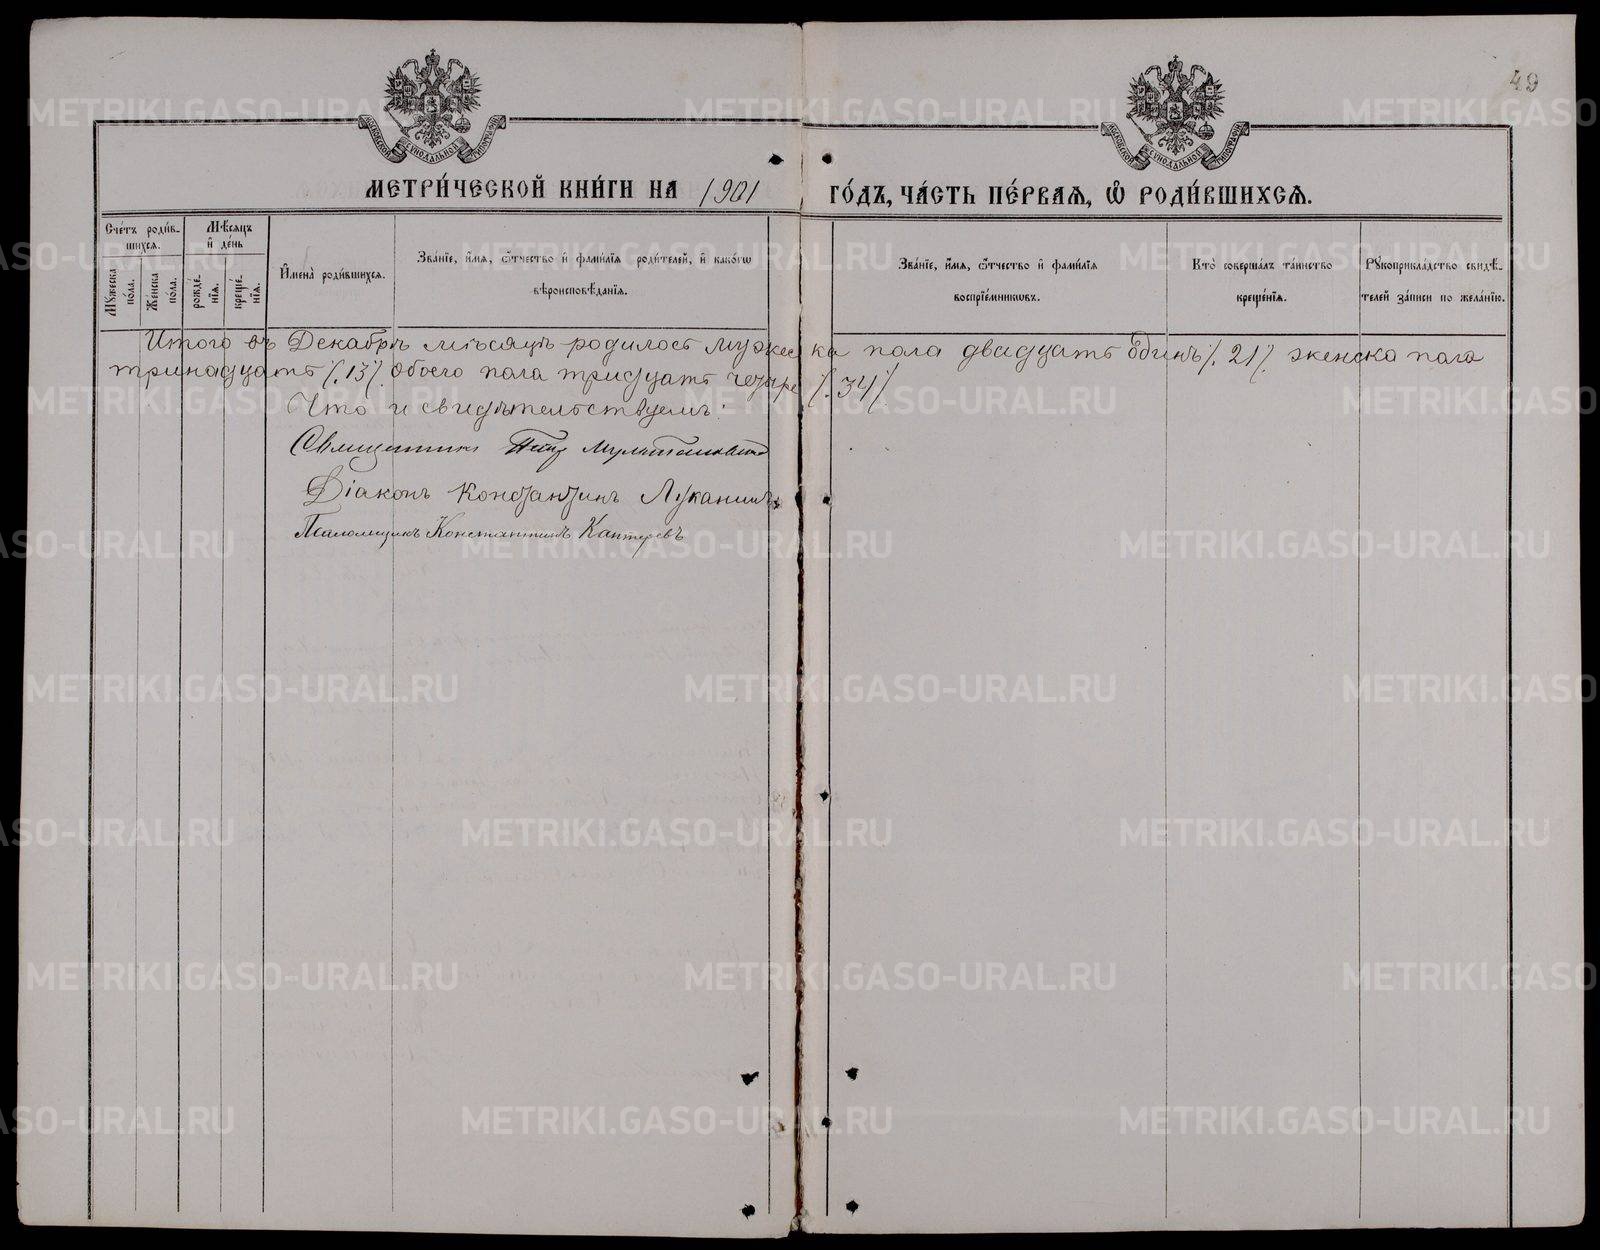 49
МОСКОВСКОЙ СѴНОДАЛЬНОЙ ТИПОГРАФІИ
МОСКОВСКОЙ СѴНОДАЛЬНОЙ ТИПОГРАФІИ
МЕТРИ́ЧЕСКОЙ КНИ́ГИ НА 1901 ГО́ДЪ, ЧА́СТЬ ПЕ́РВАѦ, Ѡ҆ РОДИ́ВШИХСѦ.
Сче́тъ роди́в-
шихсѧ.
Мꙋ́жеска по́ла.
Же́нска по́ла.
Мѣ́сѧцъ
и҆ де́нь
рожде́-
нїѧ.
креще́-
нїѧ.
И҆мена̀ роди́вшихсѧ.
Зва́нїе, и҆́мѧ, ѻ҆́тчество и҆ фами́лїѧ роди́телей, и҆ како́гѡ
вѣроисповѣ́данїѧ.
Зва́нїе, и҆́мѧ, ѻ҆́тчество и҆ фами́лїѧ
воспрїе́мникѡвъ.
Кто̀ соверша́лъ та́инство
креще́нїѧ.
Рꙋкоприкла́дство свидѣ́-
телей за́писи по жела́нїю.
Итого въ Декабрѣ мѣсяцѣ родилось мужеска пола двадцать одинъ /. 21 /. женска пола
тринадцать /. 13 /. обоего пола тридцать четыре /. 34 /.
Что и свидѣтельствуемъ:
Священникъ Петръ
Діаконъ Константинъ Луканинъ
Псаломщикъ Константинъ Каптеревъ
METRIKI.GASO-URAL.RU